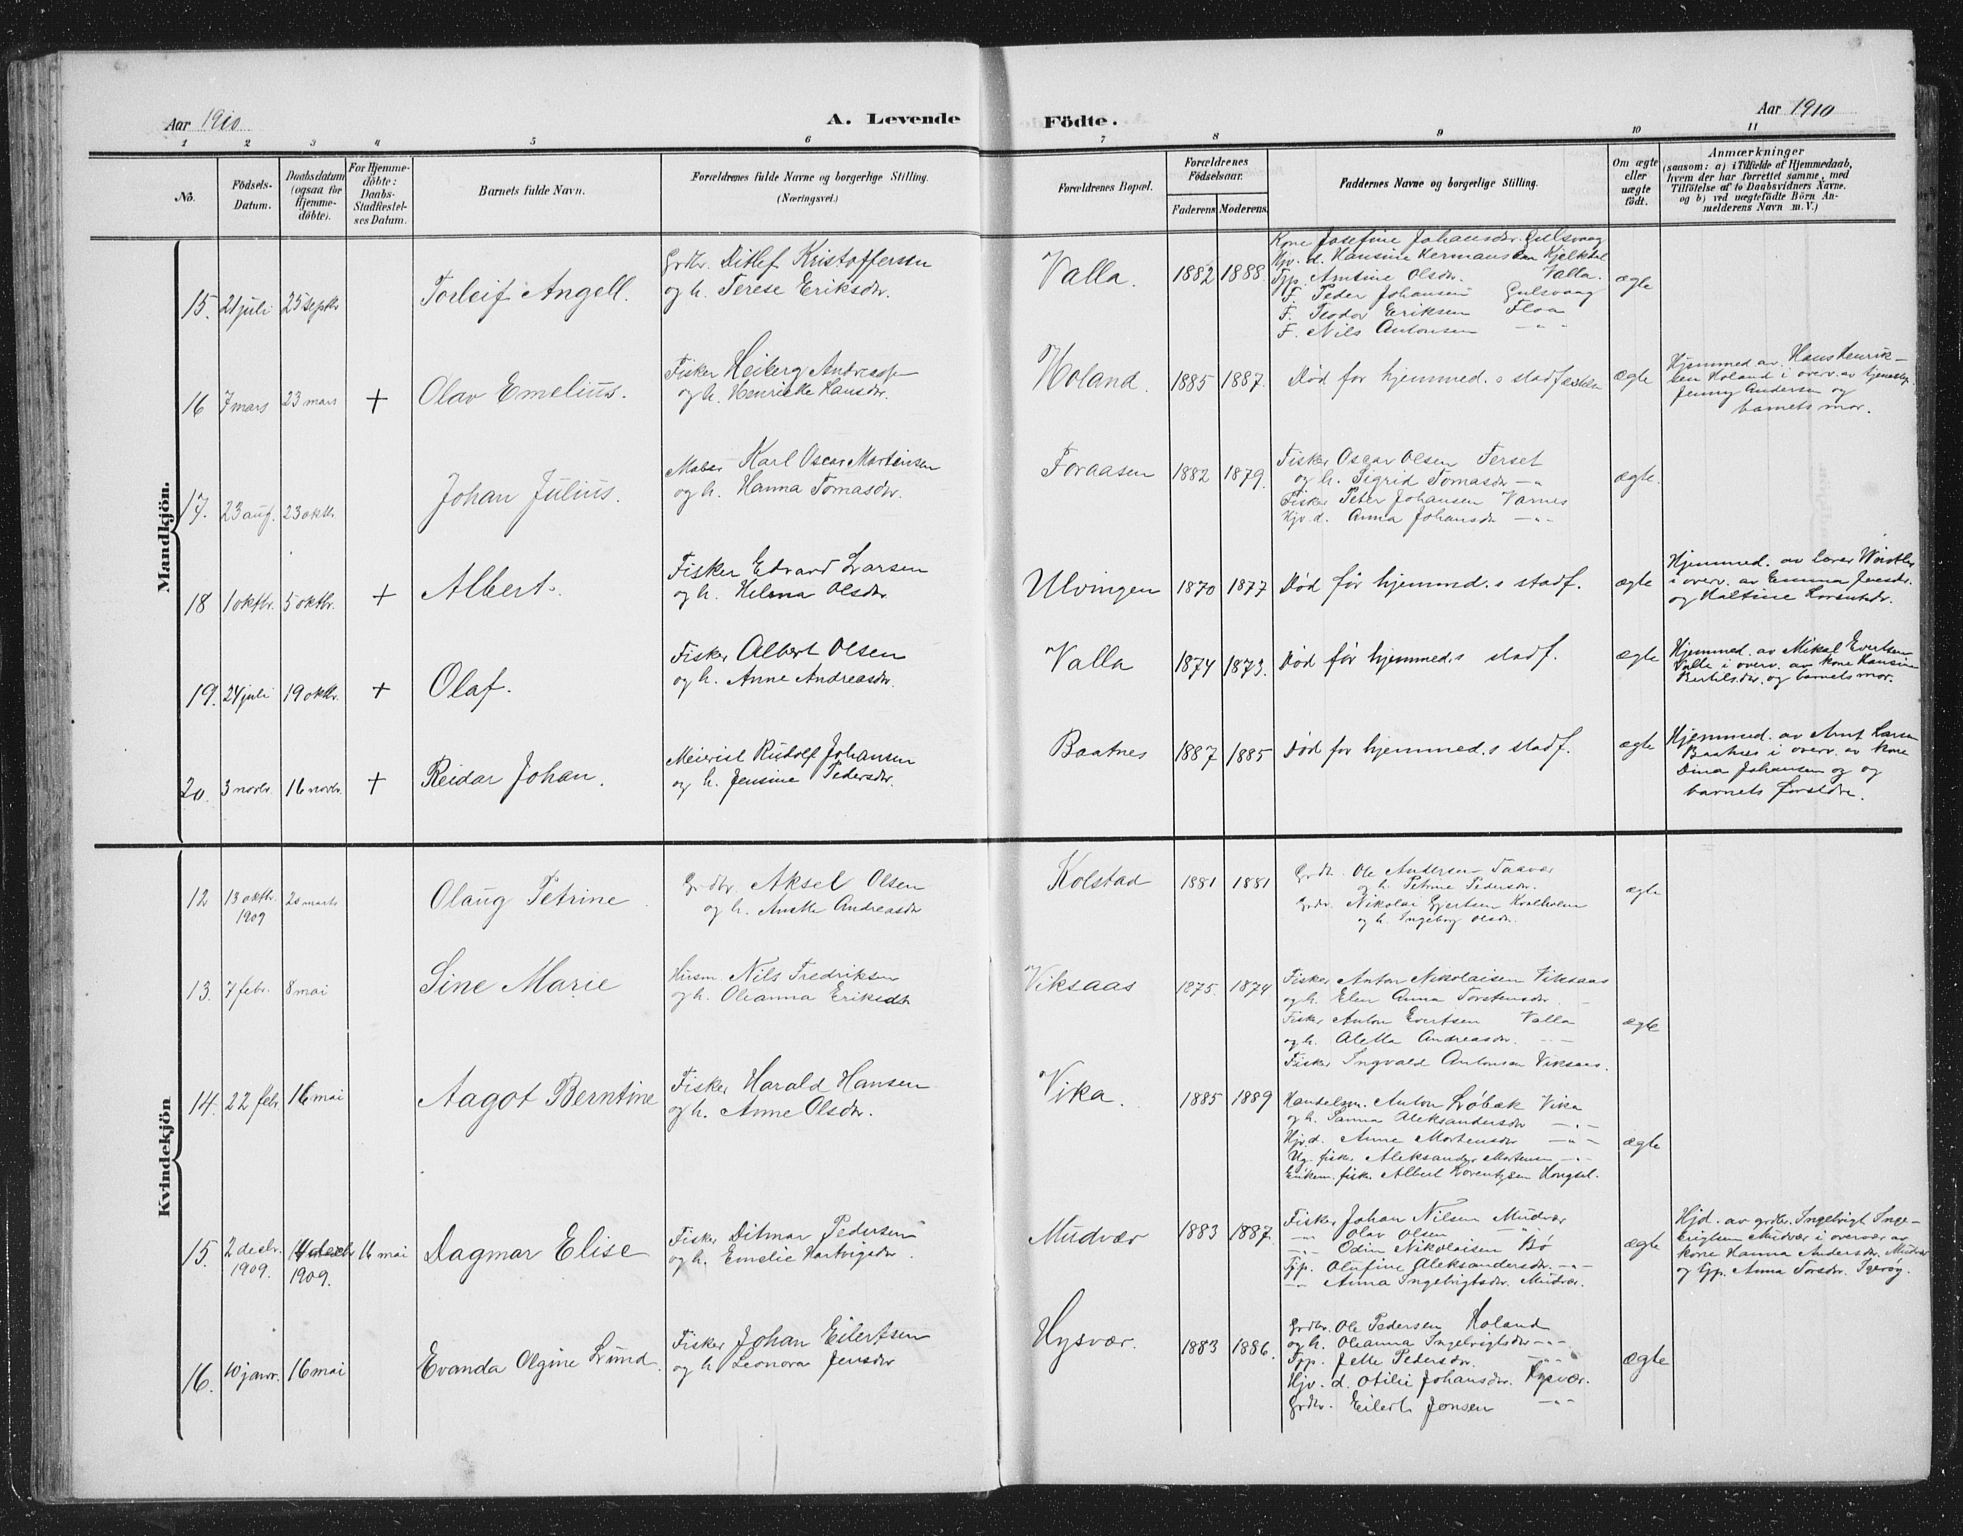 Aar 1910
A. Levende
Födte.
Aar 1910
1 2 3 4 5 6 7 8 9 10 11
No.
Födsels-
Datum.
Daabsdatum
(ogsaa for
Hjemme-
döbte).
For Hjemme-
döbte:
Daabs-
Stadfæstel-
ses Datum.
Barnets fulde Navn.
Forældrenes fulde Navne og borgerlige Stilling.
(Næringsvei.)
Forældrenes Bopæl.
Forældrenes
Födselsaar.
Faderens. Moderens.
Faddernes Navne og borgerlige Stilling.
Om ægte
eller
uægte
födt.
Anmærkninger
(saasom: a) i Tilfælde af Hjemmedaab,
hvem der har forrettet samme, med
Tilföielse af to Daabsvidners Navne,
og b) ved uægtefödte Börn An-
melderens Navn m. V.)
Mandkjön.
15. 21 juli 25 septbr Torleif Angell.
Grdbr. Ditlef Kristoffersen
og h. Terese Eriksdr.
Valla. 1882 1888
Kone Josefine Johansdr. Gulsvaag
Hjv. d. Hansine Hermansen Kjelkdal
Tjp. Antine Olsdr. Valla.
F. Peder Johansen Gulsvaag
F. Teodor Eriksen Floa
F. Nils Antonsen - " -
ægte
16 7 mars 23 mars + Olav Emelius.
Fisker Heiberg Andreass.
og h. Henrikke Hansdr.
Holand. 1885 1887.
Død for hjemmed. s stadfæstelse
ægte
Hjemmed. av Hans Henrik-
sen Holand i overv. av tjenestep.
Jenny Andersen og
barnets mor.
17. 23 aug. 23 oktbr Johan Julius.
Maler Karl Oscar Mortensen
og h. Hanna Tomasdr.
Foraasen 1882 1879.
Fisker Oscar Olsen Terset
og h. Sigrid Tomasdr - " -
Fisker Peter Johansen Varnes
Hjv. d. Anna Johansdr - " -
ægte.
18 1 oktbr. 5 oktbr. + Albert.
Fisker Edvard Larsen
og h. Helena Olsdr
Ulvingen 1870 1877
Død før hjemmed. s stadf.
ægte
Hjemmed. av Lærer
i overv. av Emma Jensdr.
og Haltine
19. 24 juli 19 oktbr. + Olaf.
Fisker Albert Olsen
og h. Anne Andreasdr.
Valla 1874 1873.
Død før hjemmed. s stadf.
ægte
Hjemmed. av Mikal Evertsen
Valle i overv. av kone Hansine
Bertilsdr. og barnets mor.
20. 3 novbr. 16 novbr. + Reidar Johan.
Meierist Rudolf Johansen
og h. Jensine Pedersdr.
Baatnes 1887 1885
Død for hjemmed. s stadf.
ægte
Hjemmed. av Arnt Larsen
Baatnes i overv. av kone
Dina Johansen og og
barnets forældre.
Kvindekjön
12 13 oktbr. 1909 20 marts Olaug Petrine.
Grdbr. Aksel Olsen
og h. Anette Andreasdr
Kolstad 1881 1881
Grdb. Ole Andersen Taavær
og h. Petrine Pedersdr.
Grdbr. Nikolai Gjertsen Kvalholm
og h. Ingeborg Olsdr.
ægte
13. 7 febr. 8 mai Sine Marie
Husm Nils Fredriksen
og h. Oleanna Eriksdtr
Viksaas 1875. 1874
Fisker Anton Nikolaisen Viksaas
og h. Elen Anna Torstensdr. -
Fisker Anton Evertsen Valla
og h. Aletta Andreasdr. - -
Fisker Ingvald Antonsen Viksaas.
ægte
14. 22 febr 16 mai Aagot Berntine
Fisker Harald Hansen
og h. Anne Olsdr.
Vika. 1885 1889
Handelsm. Anton Løbak Vika
og h. Sanna Aleksandersdr - " -
Hjv. d. Anne Mortensdr - " -
Ug. fisk. Aleksander Mortensen - " -
Enkem. fisk. Albert Lorentzen Hongsel.
ægte
15. 2 decbr. 1909. 14 decbr 1909. 16 mai Dagmar Elise
Fisker Ditmar Pedersen
og h. Emelie Hartvigsdr.
Mudvær 1883 1887.
Fisker Johan Nilsen Mudvær
- " - Olav Olsen
- " - Odin Nikolaisen Bø
Tjp. Olufine Aleksandersdr. - " -
- " - Anna Ingebrigtsdr. Mudvær.
ægte
Hjd. av grdbr. Ingebrigt Inge-
brigtsen Mudvær i overvær av
kone Hanna Andersdr. Mudvær
og tjp. Anna Torsdr. Tjerøy.
16. 10 janr. 16 mai Evanda Olgine Lund.
Fisker Johan Eilertsen
og h Leonora Jensdr
Hysvær. 1883 1886.
Grdbr. Ole Pedersen Holand
og h. Oleanna Ingebrigtsdr - " -
Tjp. Jette Pedersdr. - " -
Hjv. d. Otilie Johansdr. Hysvær.
Grdbr. Eilert Jensen - " -
ægte